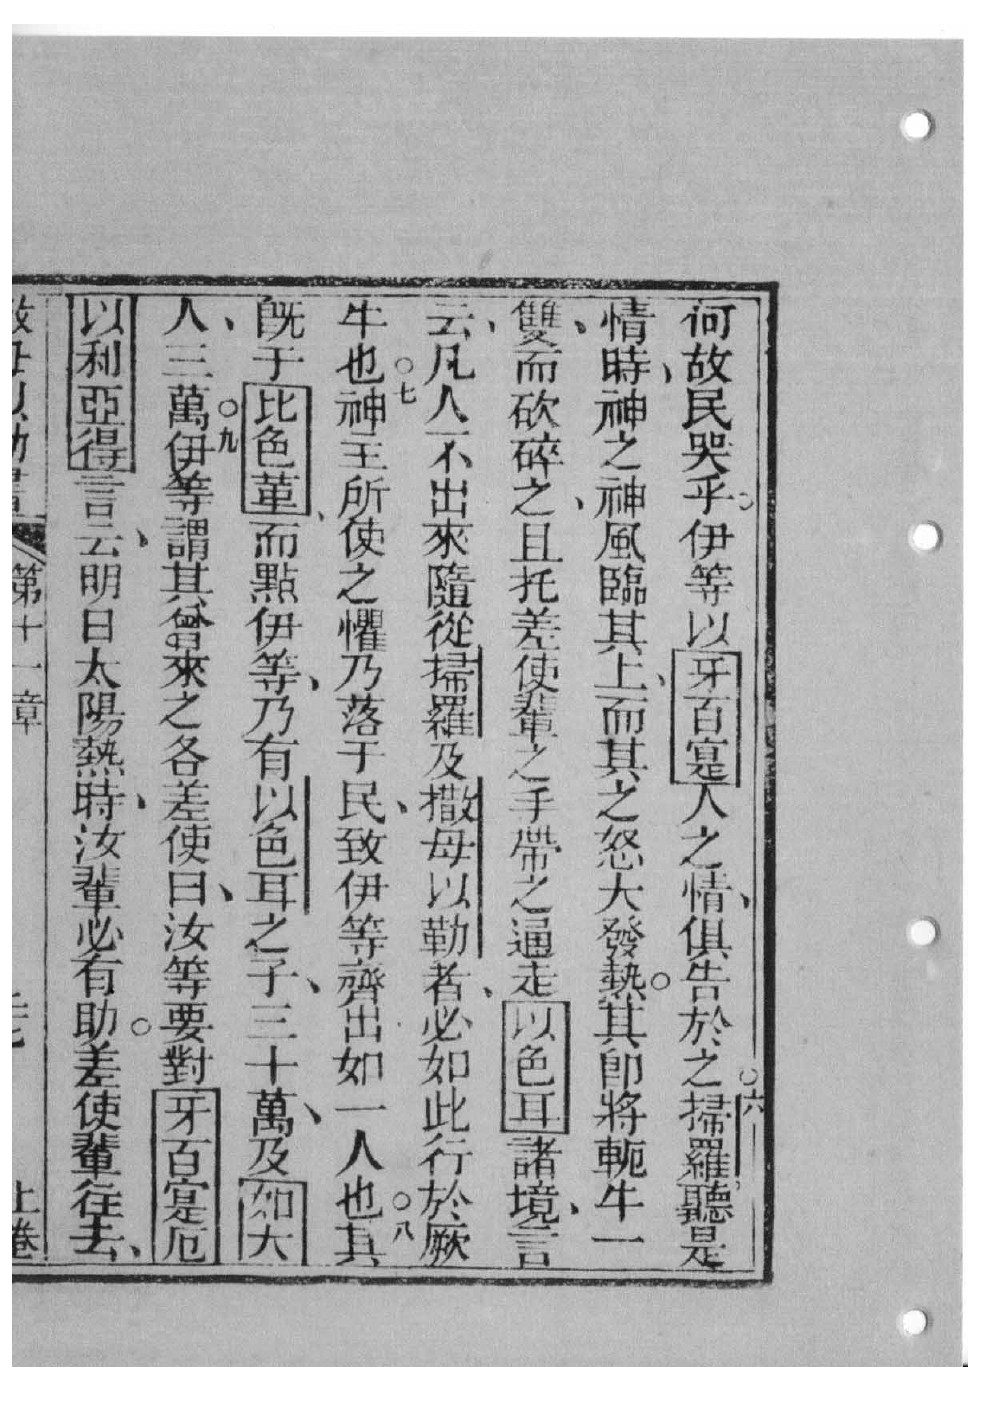 何故民哭乎。伊等以牙百寔人之情、俱吿於之。六掃羅聽是
情時、神之神風臨其上、而其之怒大發熱。其卽將軛牛一
雙、而砍碎之、且托差使輩之手帶之通走以色耳諸境、言
云、凡人不出來隨從掃羅及撒母以勒者、必如此行於厥
牛也。七神主所使之懼乃落于民、致伊等齊出如一人也。八其
旣于比色革、而點伊等、乃有以色耳之子、三十萬、及如大
人、三萬。九伊等謂其曾來之各差使曰、汝等要對牙百寔厄
以利亞得言云、明日太陽熱時、汝輩必有助。差使輩徃去、
撒母以勒書 第十一章 上卷